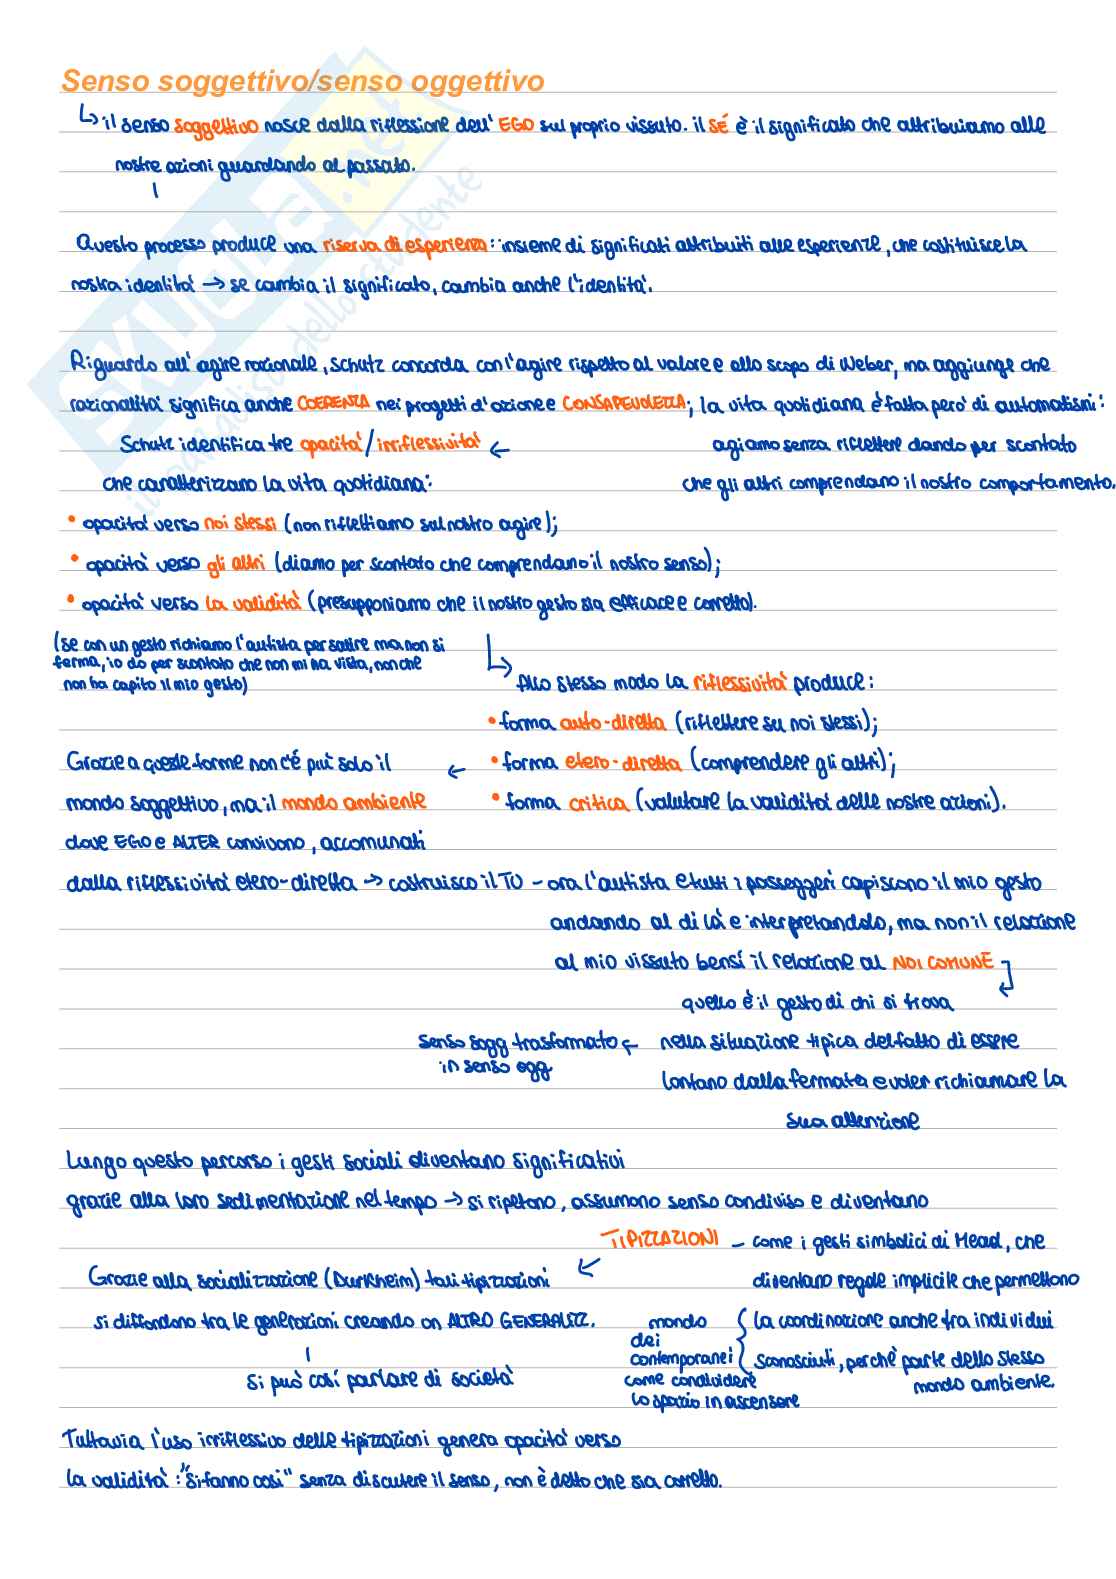 Senso soggettivo/senso oggettivo
↳ il senso soggettivo nasce dalla riflessione dell'EGO sul proprio vissuto. il SÉ è il significato che attribuiamo alle
nostre azioni guardando al passato.
Questo processo produce una riserva di esperienza: insieme di significati attribuiti alle esperienze, che costituisce la
nostra identità → se cambia il significato, cambia anche l'identità.
Riguardo all'agire razionale, Schutz concorda con l'agire rispetto al valore e allo scopo di Weber, ma aggiunge che
razionalità significa anche COERENZA nei progetti d'azione e CONSAPEVOLEZZA; la vita quotidiana è fatta però di automatismi:
agiamo senza riflettere dando per scontato
che gli altri comprendano il nostro comportamento.
Schutz identifica tre opacità/irriflessività ←
che caratterizzano la vita quotidiana:
• opacità verso noi stessi (non riflettiamo sul nostro agire);
• opacità verso gli altri (diamo per scontato che comprendano il nostro senso);
• opacità verso la validità (presupponiamo che il nostro gesto sia efficace e corretto).
(se con un gesto richiamo l'autista per salire ma non si
ferma, io do per scontato che non mi ha vista, non che
non ha capito il mio gesto)
Allo stesso modo la riflessività produce:
• forma auto-diretta (riflettere su noi stessi);
• forma etero-diretta (comprendere gli altri);
• forma critica (valutare la validità delle nostre azioni).
Grazie a queste forme non c'è più solo il ←
mondo soggettivo, ma il mondo ambiente
dove EGO e ALTER convivono, accomunati
dalla riflessività etero-diretta → costruisco il TU - ora l'autista e tutti i passeggeri capiscono il mio gesto
andando al di là e interpretandolo, ma non il relazione
al mio vissuto bensì il relazione al NOI COMUNE
quello è il gesto di chi si trova
nella situazione tipica del fatto di essere
lontano dalla fermata e voler richiamare la
sua attenzione
senso sogg trasformato ←
in senso ogg
Lungo questo percorso i gesti sociali diventano significativi
grazie alla loro sedimentazione nel tempo → si ripetono, assumono senso condiviso e diventano
TIPIZZAZIONI - come i gesti simbolici di Mead, che
diventano regole implicite che permettono
la coordinazione anche fra individui
sconosciuti, perché parte dello stesso
mondo ambiente.
mondo
dei
contemporanei
come condividere
lo spazio in ascensore
Grazie alla socializzazione (Durkheim) tali tipizzazioni
si diffondono tra le generazioni creando un ALTRO GENERALIZZ.
si può così parlare di società
Tuttavia l'uso irriflessivo delle tipizzazioni genera opacità verso
la validità: "si fanno così" senza discutere il senso, non è detto che sia corretto.
SKUOLA.net
il paradiso dello studente